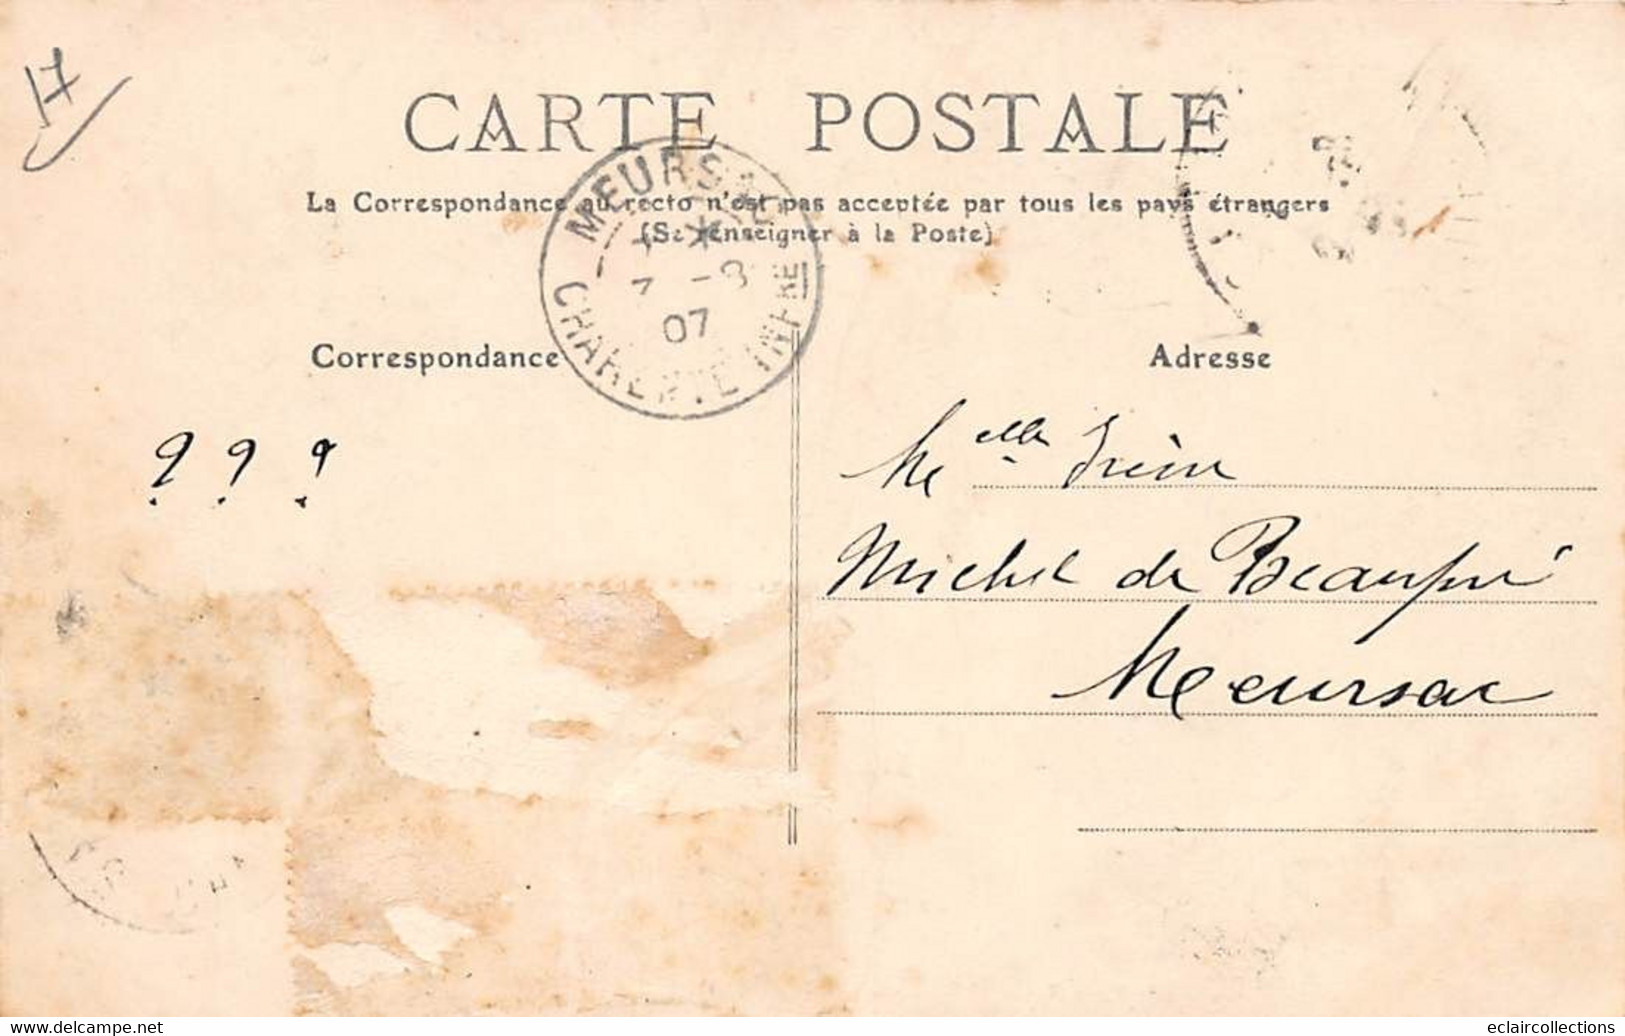 17
CARTE POSTALE
La Correspondance au recto n'est pas acceptée par tous les pays étrangers
(Se renseigner à la Poste)
MEURSAC
7 -8
07
CHARENTE INFRE
Correspondance
Adresse
? ? ?
Melle
Michel de Beaupré
Meursac
www.delcampe.net
eclaircollections